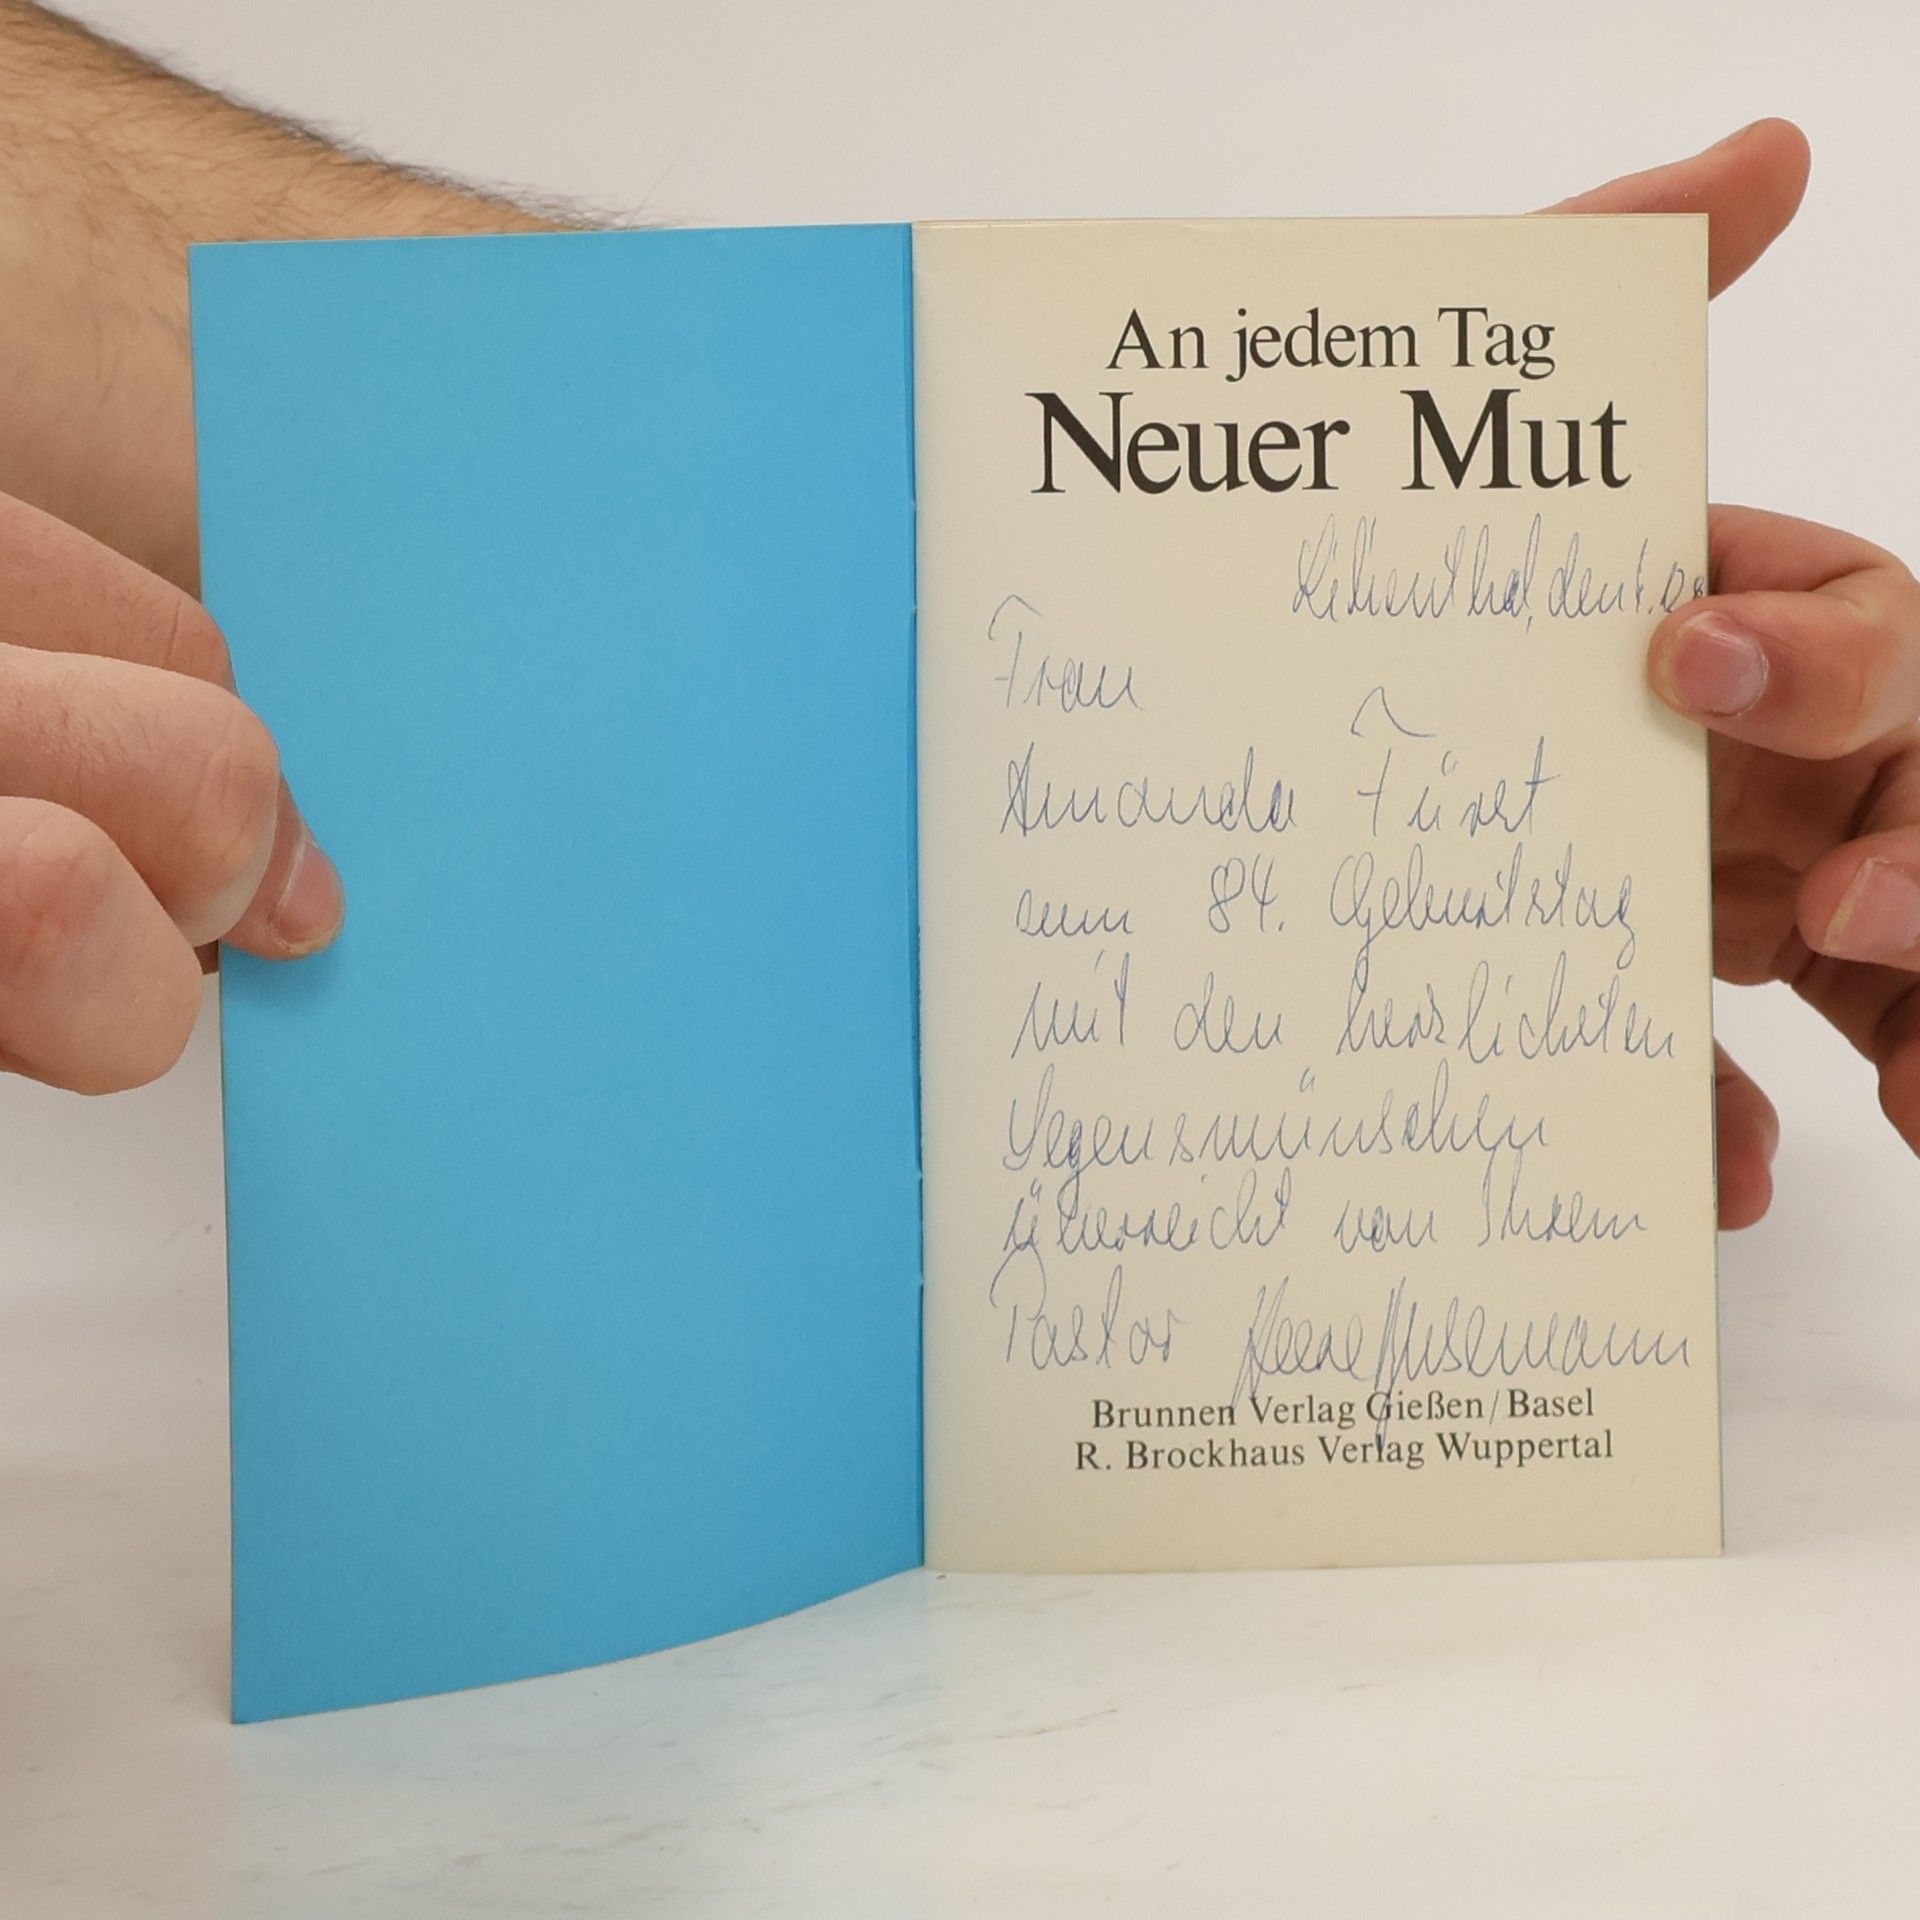 An jedem Tag
Neuer Mut
Lilienthal, den
Frau
Amanda Fürst
zum 84. Geburtstag
mit den herzlichsten
Segenswünschen
überreicht von Ihrem
Pastor
Brunnen Verlag Gießen/Basel
R. Brockhaus Verlag Wuppertal